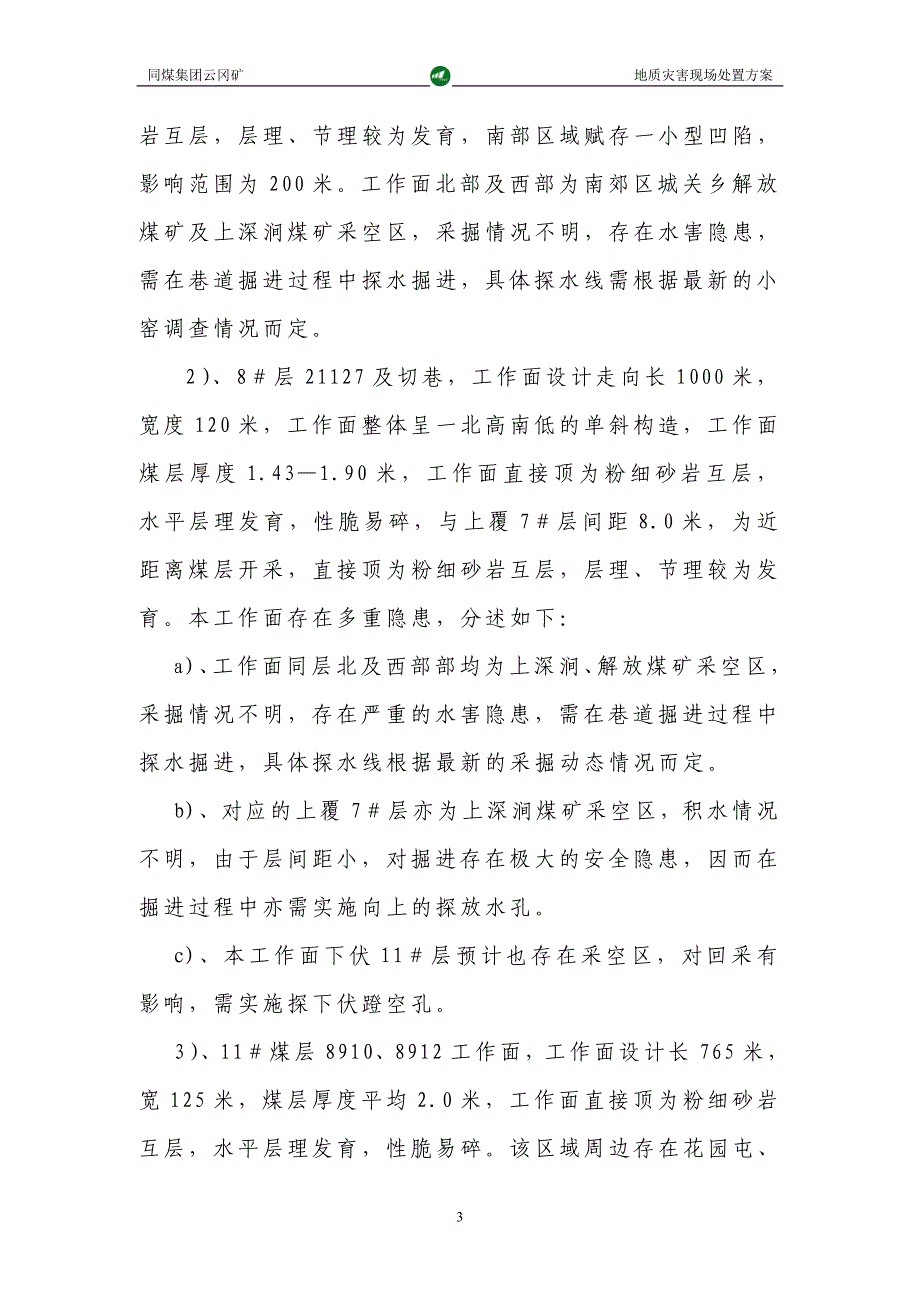 同煤集团云冈矿 地质灾害现场处置方案
岩互层，层理、节理较为发育，南部区域赋存一小型凹陷，
影响范围为 200 米。工作面北部及西部为南郊区城关乡解放
煤矿及上深涧煤矿采空区，采掘情况不明，存在水害隐患，
需在巷道掘进过程中探水掘进，具体探水线需根据最新的小
窑调查情况而定。
2）、8＃层 21127 及切巷，工作面设计走向长 1000 米，
宽度 120 米，工作面整体呈一北高南低的单斜构造，工作面
煤层厚度 1.43—1.90 米，工作面直接顶为粉细砂岩互层，
水平层理发育，性脆易碎，与上覆 7＃层间距 8.0 米，为近
距离煤层开采，直接顶为粉细砂岩互层，层理、节理较为发
育。本工作面存在多重隐患，分述如下：
a）、工作面同层北及西部部均为上深涧、解放煤矿采空区，
采掘情况不明，存在严重的水害隐患，需在巷道掘进过程中
探水掘进，具体探水线根据最新的采掘动态情况而定。
b）、对应的上覆 7＃层亦为上深涧煤矿采空区，积水情况
不明，由于层间距小，对掘进存在极大的安全隐患，因而在
掘进过程中亦需实施向上的探放水孔。
c）、本工作面下伏 11＃层预计也存在采空区，对回采有
影响，需实施探下伏蹬空孔。
3）、11＃煤层 8910、8912 工作面，工作面设计长 765 米，
宽 125 米，煤层厚度平均 2.0 米，工作面直接顶为粉细砂岩
互层，水平层理发育，性脆易碎。该区域周边存在花园屯、
3